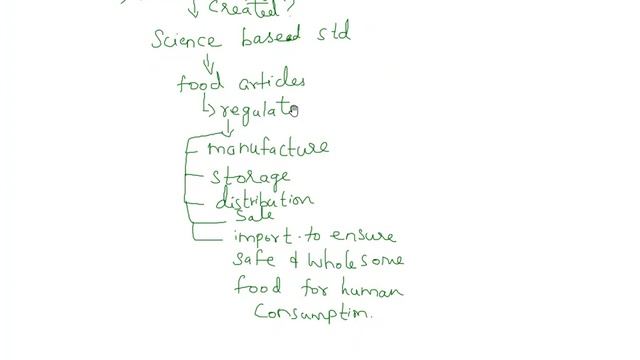 created?
Science based std
food articles
regulate
manufacture
storage
distribution
Sale
import. to ensure
safe & wholesome
food for human
Consumption.